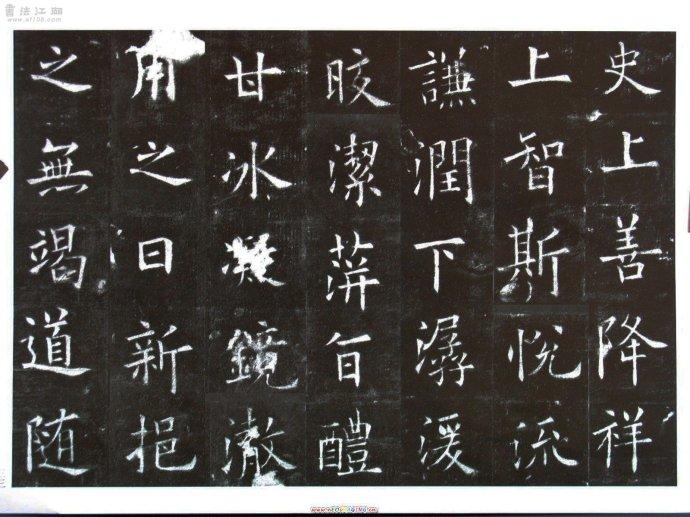 史上善降祥
上智斯悅流
謙潤下潺湲
皎潔蓱旨醴
甘冰凝鏡澈
用之日新挹
之無竭道随
書法江湖